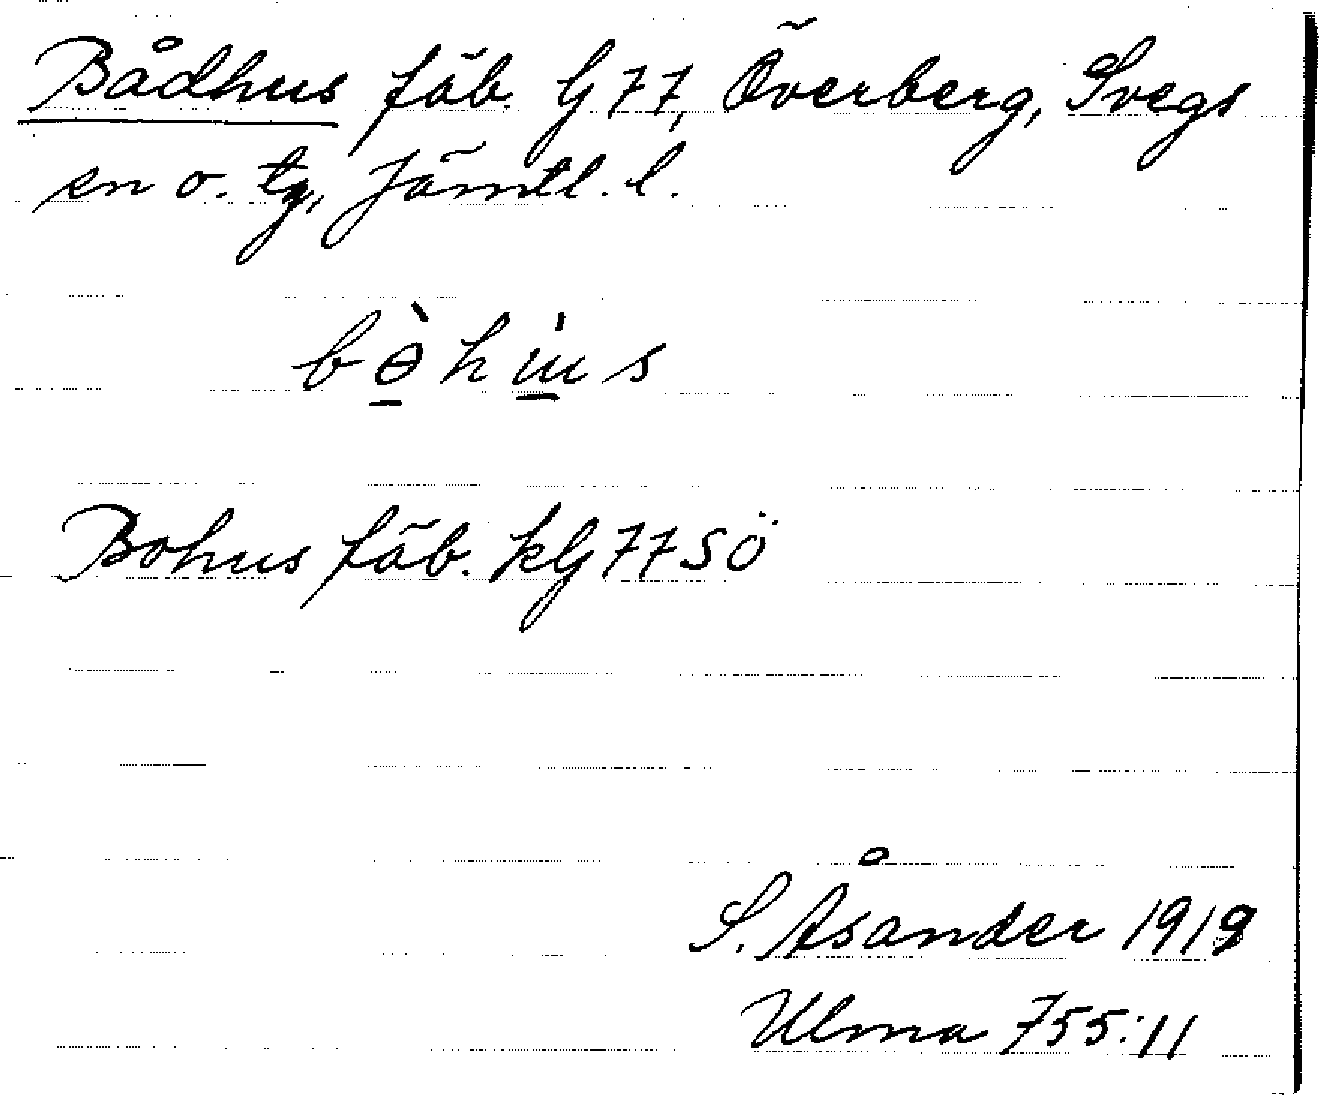 Bådhus fäb. G 77, Överberg, Svegs
sn o. tg, Jämtl. l.
bɵ̀hus
Bohus fäb. kG 77 SÖ
S. Åsander 1919
Ulma 755:11